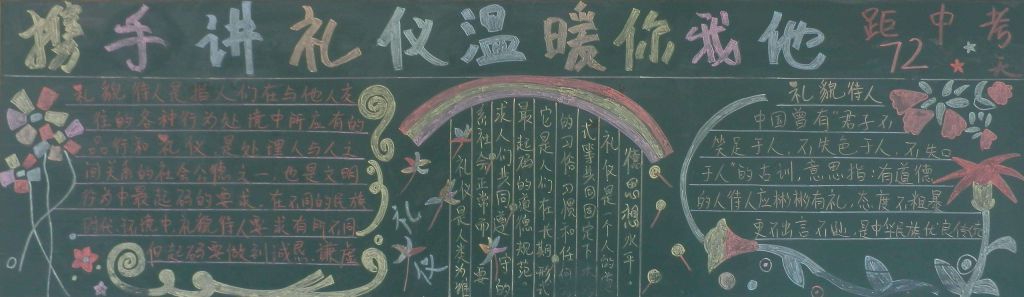 携手讲礼仪温暖你我他
距中考
72天
礼貌待人是指人们在与他人交
往的各种行为处境中所应有的
品行和礼仪,是处理人与人之
间关系的社会公德之一,也是文明
行为中最起码的要求。在不同的民族
时代环境中,礼貌待人要求有所不同
但起码要做到诚恳、谦虚
礼仪
礼仪是人类为维
系社会正常
要
求人们共同遵守的
最起码的道德规范,
它是人们在长期
的习俗习惯和
礼仪是一个人的
思想水平
礼貌待人
中国曾有“君子不
笑足于人,不失色于人,不失口
于人”的古训,意思指:有道德
的人待人应彬彬有礼,态度不粗暴
更不出言不逊,是中华民族优良传统